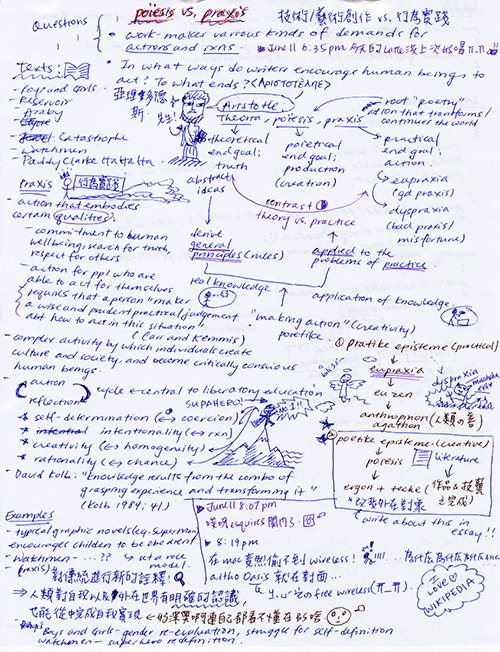 poiesis vs. praxis
技術/藝術創作 vs. 行為實踐
Questions
• work makes various kinds of demands for
authors and rxns
June 11 6:35pm 今天的Latte沒上次的喝 π_π
• In what ways do writers encourage human beings to
act? To what ends? <ΑΡΙΣΤΟΤΕΛΗΣ>
Texts:
- Boys and Girls.
- Reservoir
- Araby
- Catastrophe
- Watchmen
- Paddy Clarke Ha Ha Ha
亞理斯多德
先生!
Aristotle:
Theoria, poiesis, praxis
root "poetry"
action that transforms/
continues the world
theoretical
end goal:
truth
abstract
ideas
poietical
end goal:
production
(creation)
practical
end goal:
action.
eupraxia
(gd praxis)
dyspraxia
(bad praxis/
misfortune)
contrast
theory vs. practice
derive
general
principles (rules)
applied to the
problems of practice.
real knowledge
application of knowledge
"making action" (creativity)
poietike
Praxis
行為實踐
- action that embodies
certain qualities:
- commitment to human
wellbeing, search for truth,
respect for others
- action for ppl who are
able to act for themselves
- requires that a person "makes
a wise and prudent practical judgement
abt how to act in this situation"
(Carr and Kemmis)
- complex activity by which individuals create
culture and society, and become critically conscious
human beings.
action
reflection
cycle - central to liberatory education
SUPAHERO!
* self-determination (↔ coercion)
* intentionality (↔ rxn)
* creativity (↔ homogeneity)
* rationality (↔ chance)
- David Kolb: "knowledge results from the combo of
grasping experience and transforming it"
(Kolb 1984: 41)
① pratike episteme (practical)
eupraxia
eu zen
anthropinon (人類の善)
agathon
dyspraxia
② poetike episteme (creative)
poiesis
literature
ergon + teché (作品&技藝
之完成)
*改變外在對象
(write about this in
essay!!)
June 11 8:07 pm
esquires 關門了
8:19 pm
在 mac 竟然偷不到 wireless!
altho Oasis 就在對面...
free wireless (π_π)
為什麼為什麼為什麼
I LOVE
WIKIPEDIA
Examples
- typical graphic novels (eg. Superman
encourages children to be obedient
- Watchmen - ... ??
(praxis)
對傳統進行新的詮釋!
⇒ 人類對自我以及對外在世界有明確的認識,
也能從中完成自我實現
← 好深奧啊連自己都看不懂在幹啥
- Boys and Girls - gender re-evaluation, struggle for self-definition
watchmen - superhero redefinition.